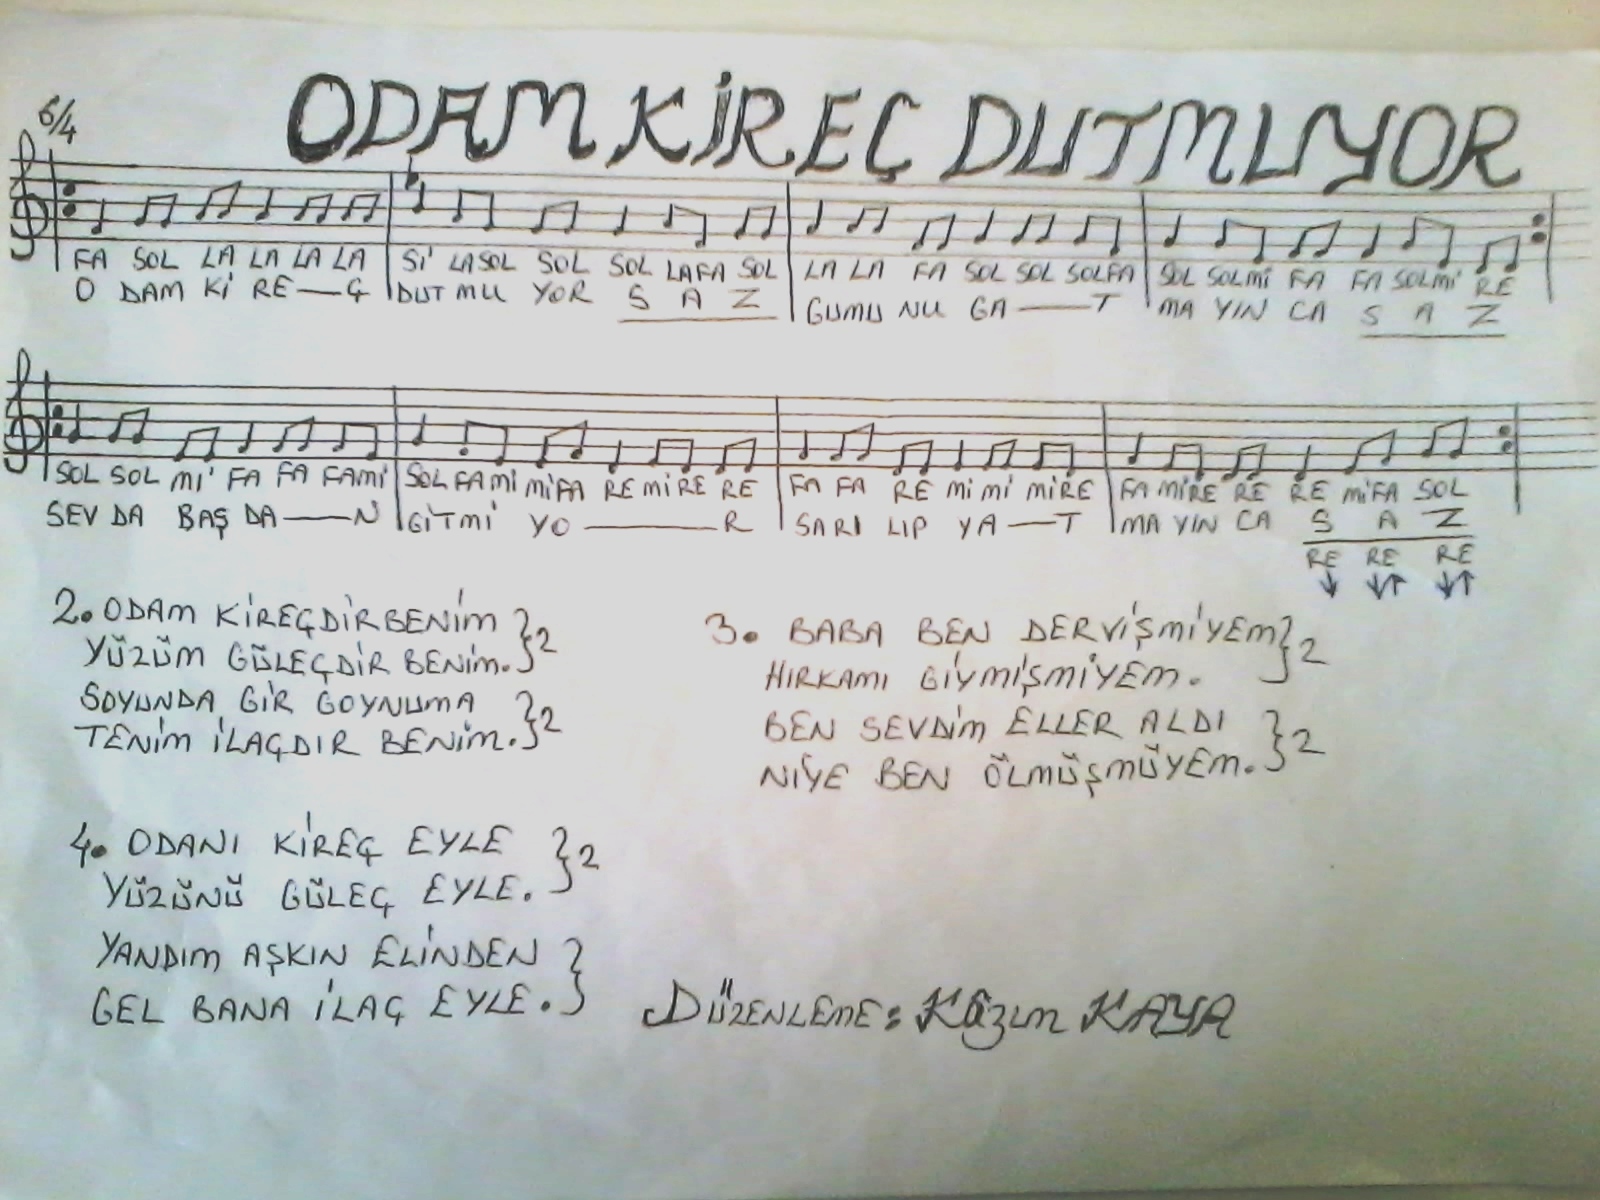 ODAM KİREÇ DUTMUYOR
6/4
FA SOL LA LA LA LA Sİ LASOL SOL SOL LAFA SOL LA LA FA SOL SOL SOLFA SOL SOLMİ FA FA SOLMİ RE
O DAM Kİ RE—Ç DUT MU YOR S A Z GUMU NU GA—T MA YIN CA S A Z
SOL SOL Mİ FA FA FAMİ SOL FAMİ MİFA RE MİRE RE FA FA RE Mİ Mİ MİRE FA MİRE RE RE MİFA SOL
SEV DA BAŞ DA—N GİTMİ YO—R SARI LIP YA—T MA YIN CA S A Z
RE RE RE
↓ ↓↑ ↓↑
2. ODAM KİREÇDİR BENİM }2
YÜZÜM GÜLEÇDİR BENİM.
SOYUNDA GİR GOYNUMA }2
TENİM İLAÇDIR BENİM.
3. BABA BEN DERVİŞMİYEM }2
HIRKAMI GİYMİŞMİYEM.
BEN SEVDİM ELLER ALDI }2
NİYE BEN ÖLMÜŞMÜYEM.
4. ODANI KİREÇ EYLE }2
YÜZÜNÜ GÜLEÇ EYLE.
YANDIM AŞKIN ELİNDEN }
GEL BANA İLAÇ EYLE.
DÜZENLEME: Kâzım KAYA